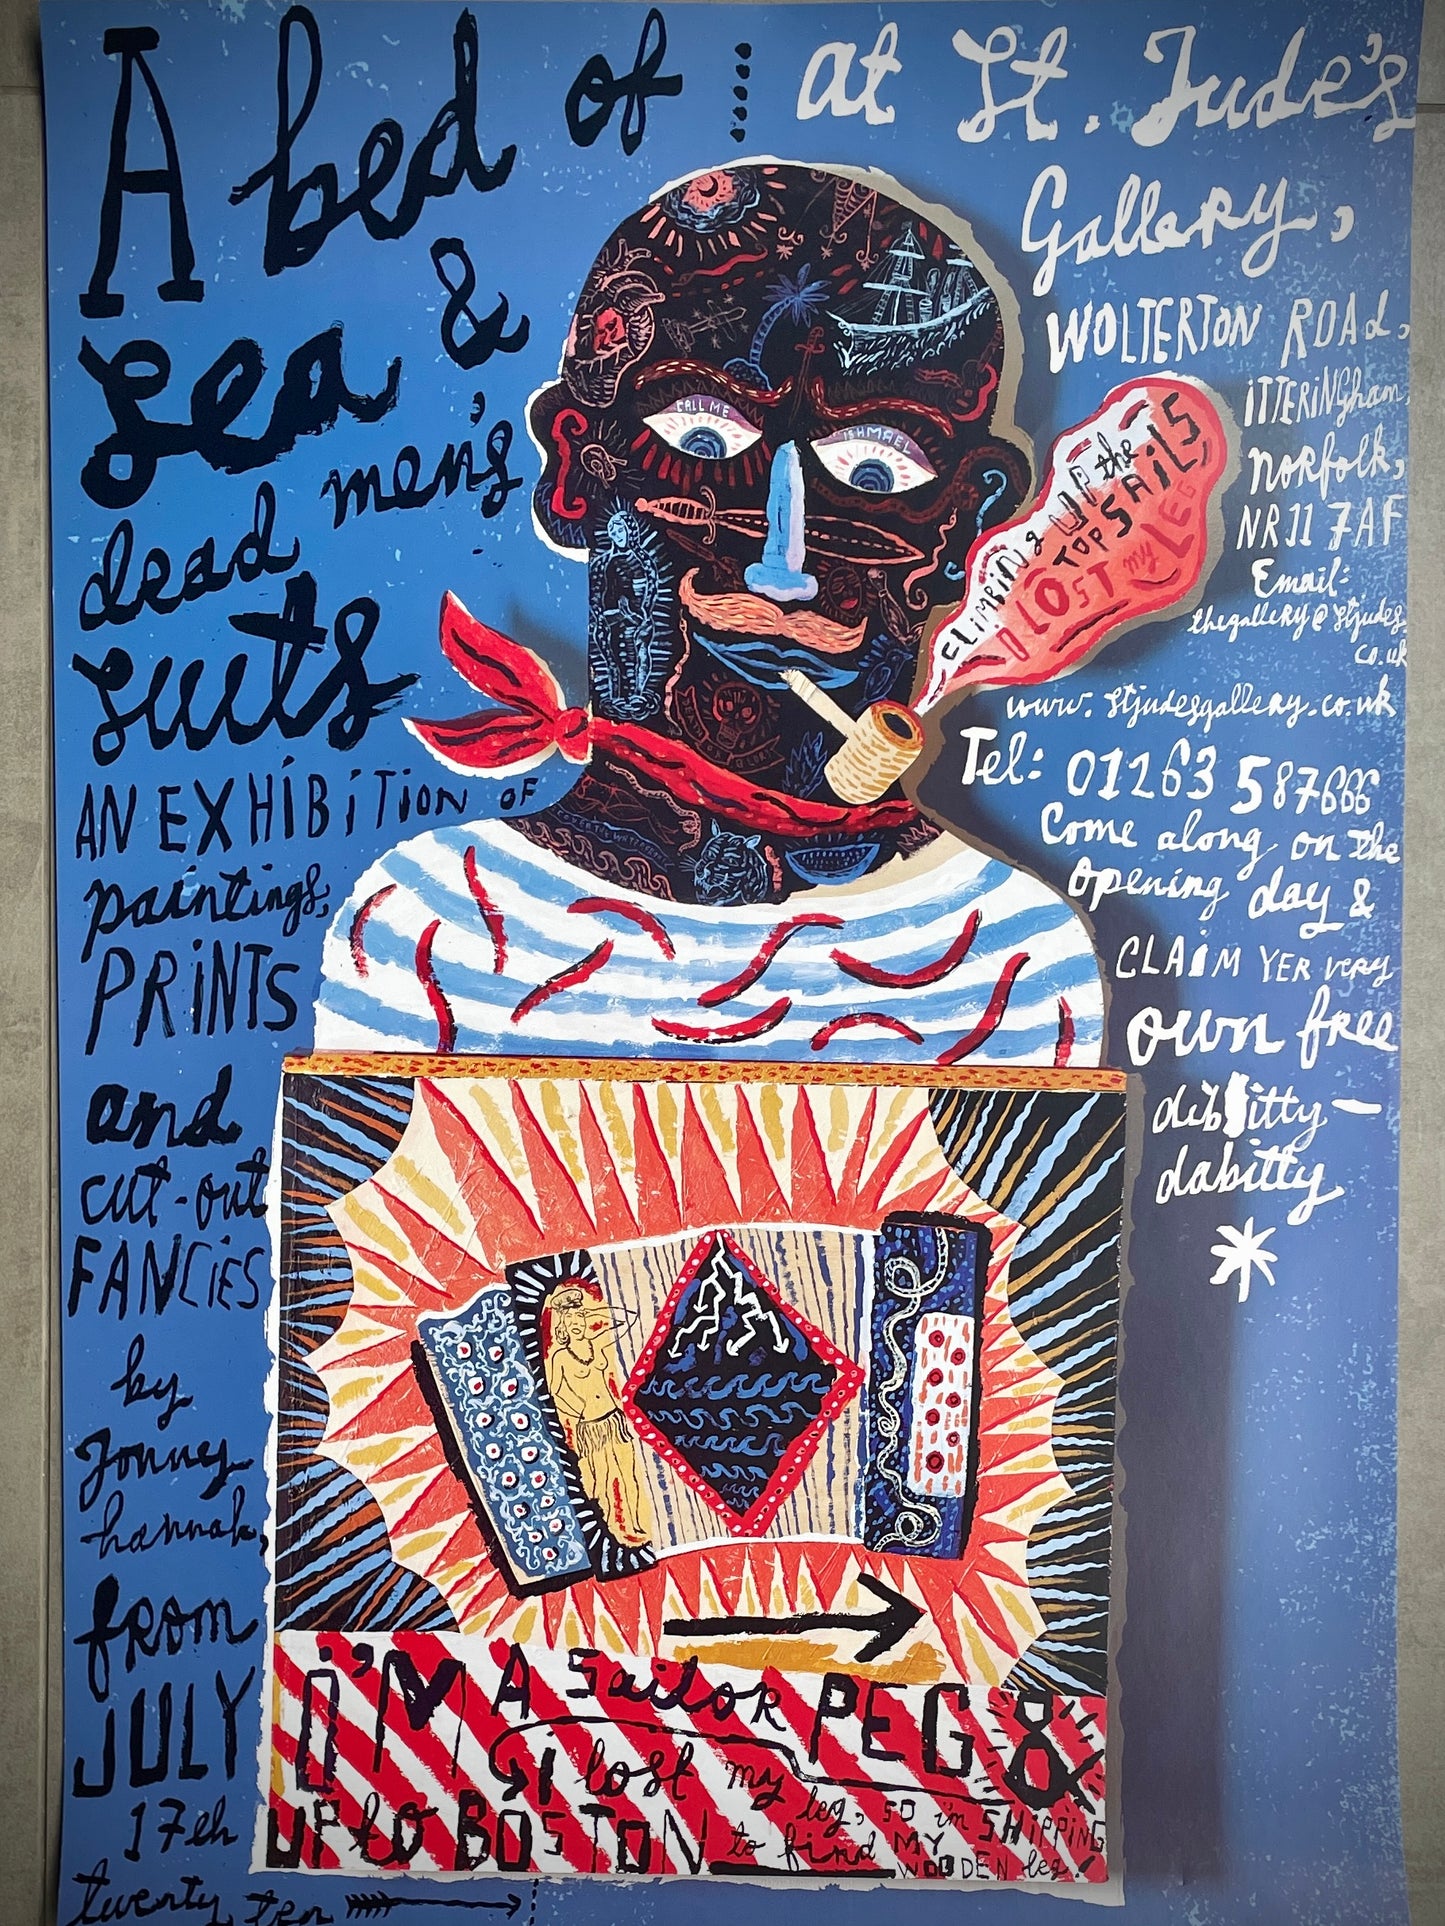 A bed of .....
Sea &
dead men's
suits
AN EXHIBITION OF
paintings,
PRINTS
and
cut-out
FANCIES
by
Jonny
hannah,
from
JULY
17th
twenty ten
at St. Jude's
Gallery,
WOLTERTON ROAd,
ITTERINGham,
norfolk,
NR11 7AF
Email:
thegallery@stjudes
co.uk
www.stjudesgallery.co.uk
Tel: 01263 587666
Come along on the
opening day &
CLAIM YER very
own free
dibbitty-
dabitty
CALL ME
ISHMAEL
CLIMBING UP the
TOPSAILS,
I LOST my LEG
I'M A Sailor PEG &
i lost my
leg, SO i'm SHiPPiNG
UP to BOSTON to find MY
WOODEN leg!